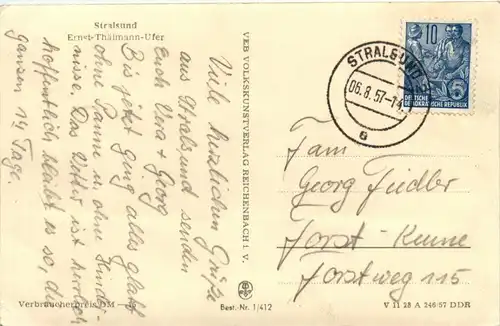 Stralsund
Ernst-Thälmann-Ufer
Viele herzlichen Grüße
aus Stralsund senden
Euch Vera + Georg
Bis jetzt ging alles glatt
ohne Panne u. ohne Hinder-
nisse. Das Wetter ist herrlich
hoffentlich bleibt es so, die
ganzen 14 Tage.
VEB VOLKSKUNSTVERLAG REICHENBACH I. V.
STRALSUND
06.8.57-
a
10
DEUTSCHE
DEMOKRATISCHE REPUBLIK
5
Fam
Georg Fiedler
Forst-Keune
Forstweg 115
Verbraucherpreis DM
Best. Nr. 1/412
V 11 28 A 246/57 DDR